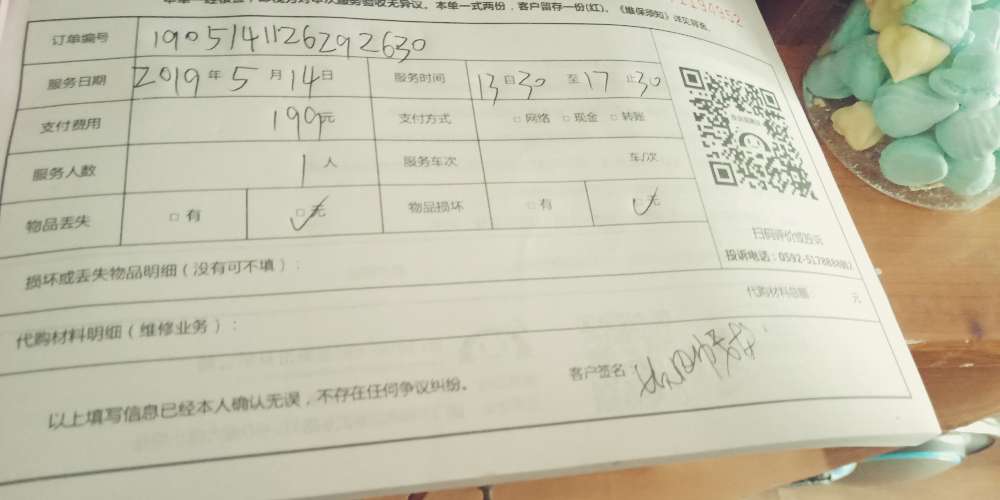 本单一式两份，客户留存一份(红)。《维保须知》详见背金
订单编号 190514112629 2630
服务日期 2019年5月14日 服务时间 13自30至17止30
支付费用 199元 支付方式 □网络 □现金 □转账
服务人数 1人 服务车次 车/次
物品丢失 □有 □无 物品损坏 □有 □无
扫码评价或投诉
投诉电话：0592-5178888
损坏或丢失物品明细（没有可不填）：
代购材料总额 元
代购材料明细（维修业务）：
客户签名：
以上填写信息已经本人确认无误，不存在任何争议纠纷。